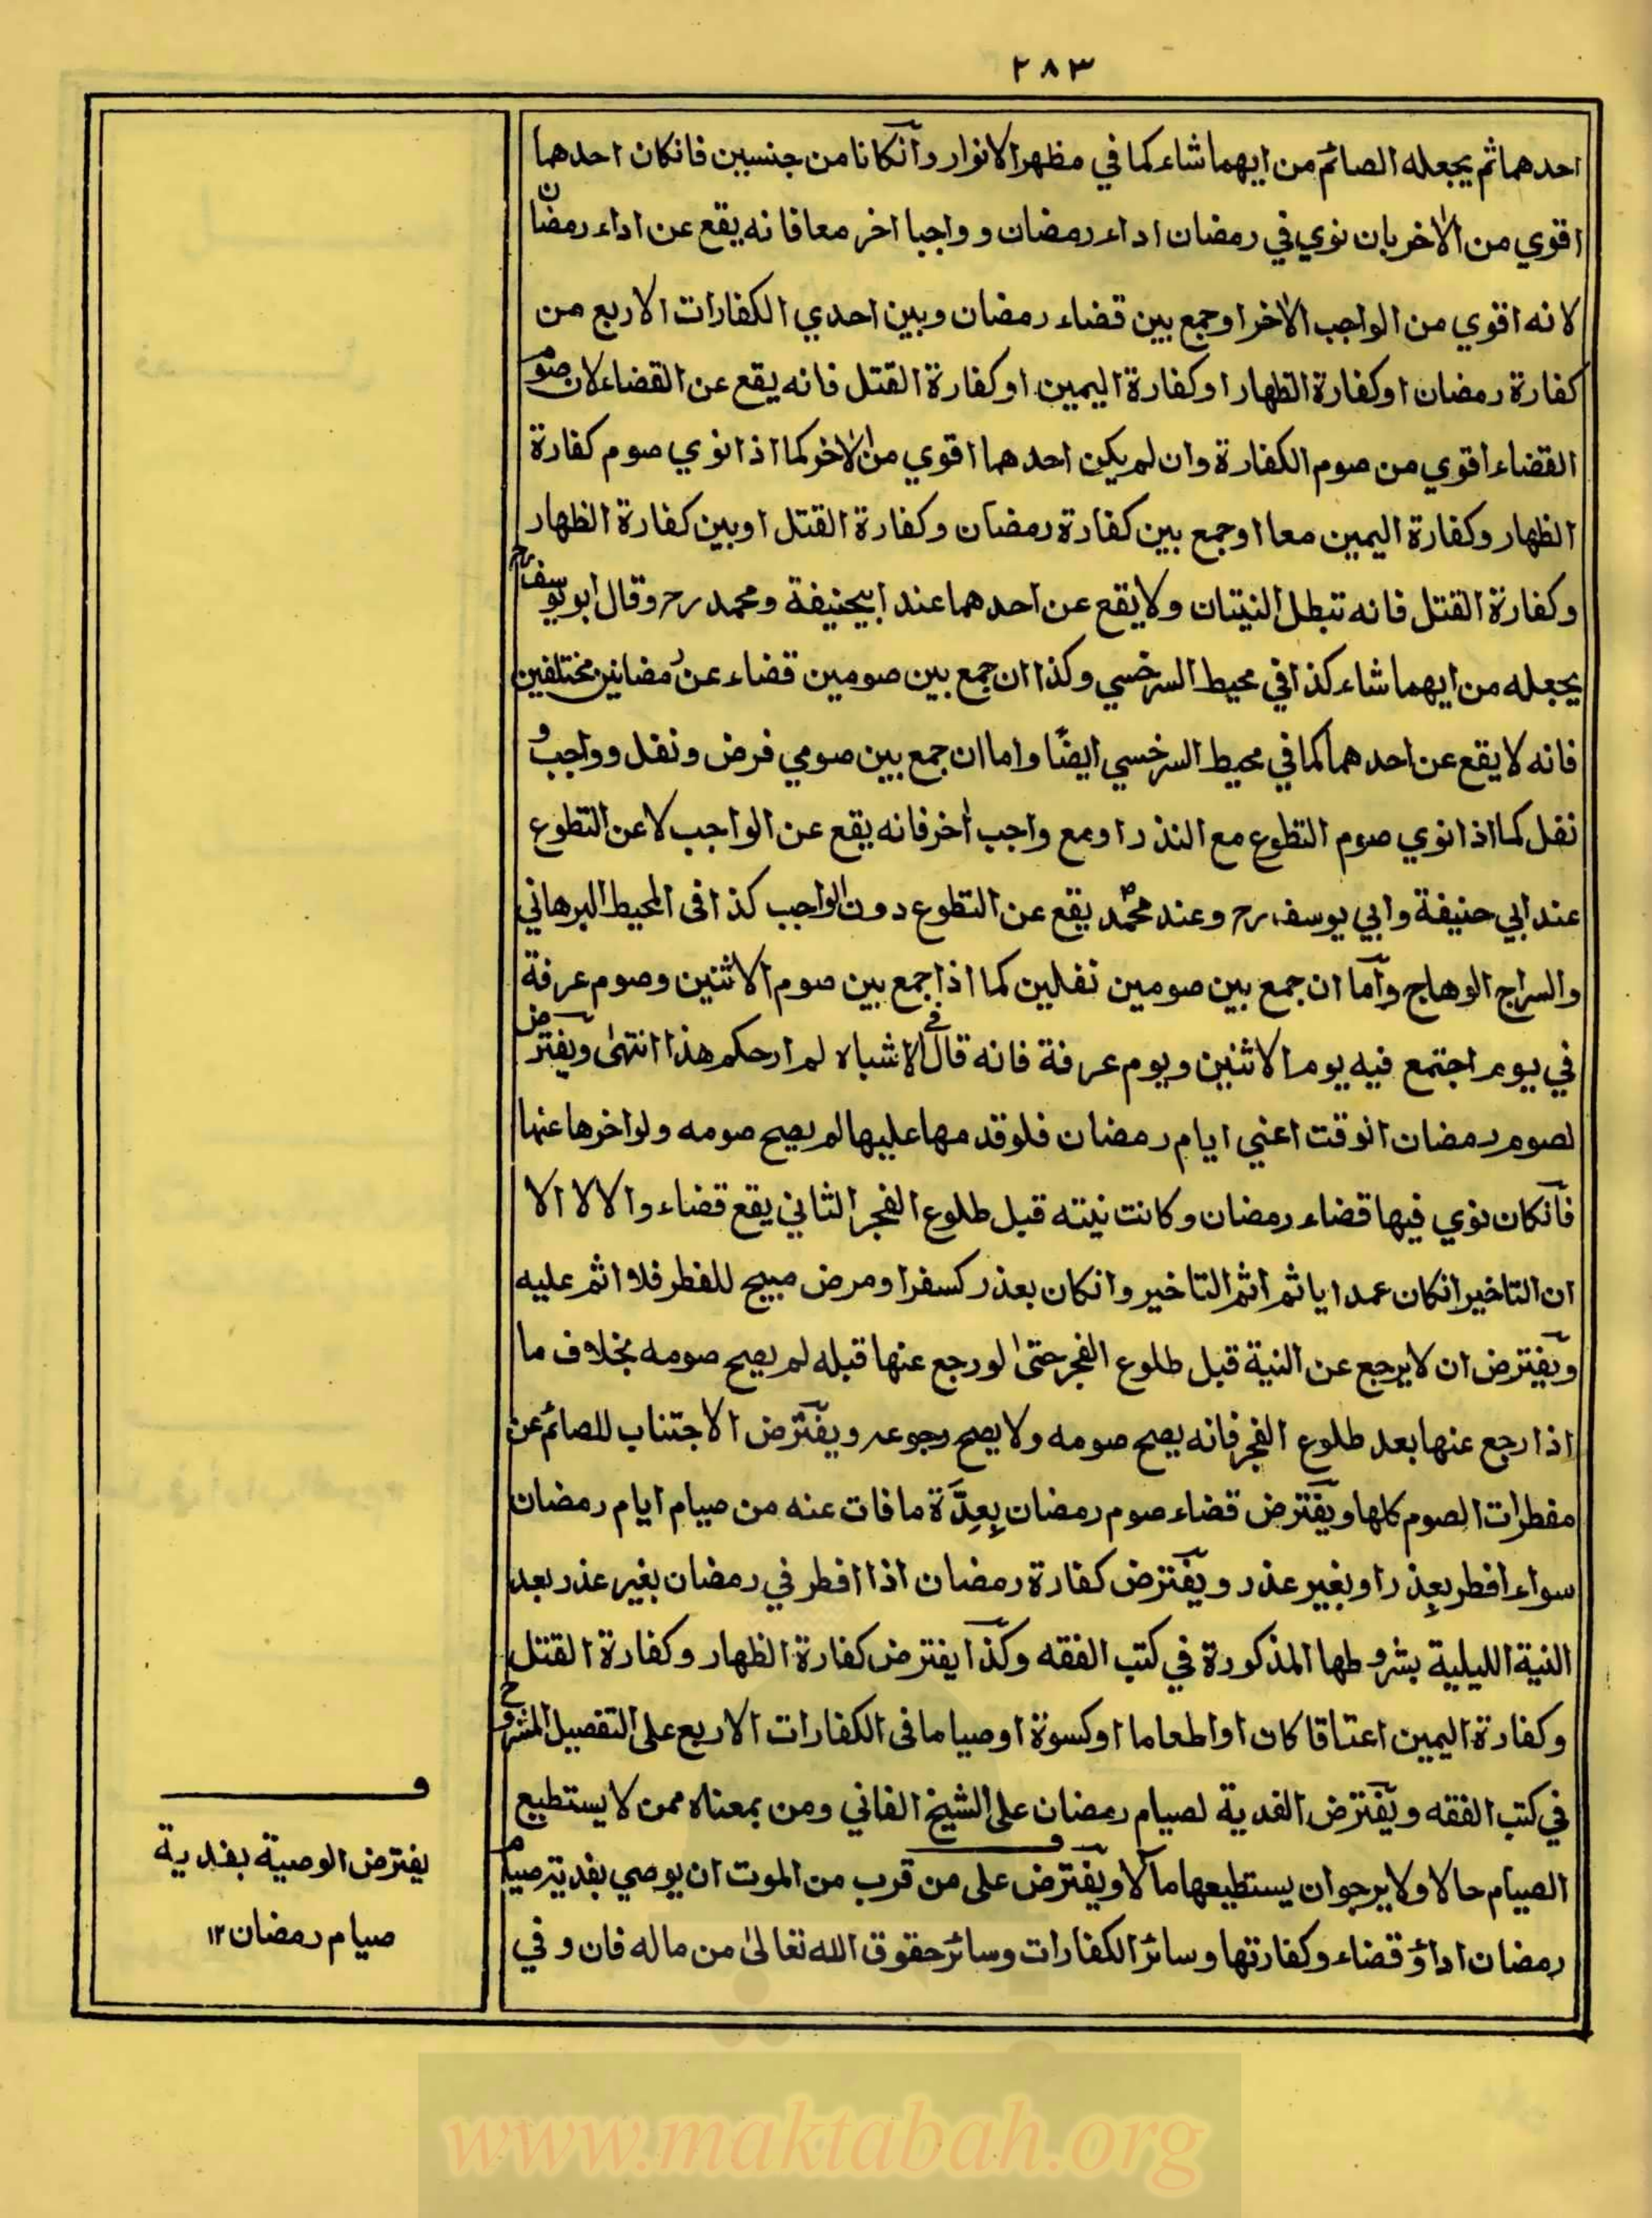 ٢٨٣
احدهما ثم يجعله الصائم من ايهما شاء كما في مظهر الانوار وآنكانا من جنسين فانكان احدهما
اقوي من الاٰخر بان نوي في رمضان اداء رمضان و واجبا اخر معا فانه يقع عن اداء رمضان
لانه اقوي من الواجب الاٰخر او جمع بين قضاء رمضان وبين احدي الكفارات الاربع من
كفارة رمضان او كفارة الظهار او كفارة اليمين او كفارة القتل فانه يقع عن القضاء لان صوم
القضاء اقوي من صوم الكفارة وان لم يكن احدهما اقوي من الاٰخر كما اذا نوي صوم كفارة
الظهار وكفارة اليمين معا او جمع بين كفارة رمضان وكفارة القتل او بين كفارة الظهار
وكفارة القتل فانه تبطل النيتان ولا يقع عن احدهما عند ابيحنيفة ومحمد رح وقال ابو يوسف رح
يجعله من ايهما شاء كذا في محيط السرخسي وكذا ان جمع بين صومين قضاء عن رمضانين مختلفين
فانه لا يقع عن احدهما كما في محيط السرخسي ايضًا واما ان جمع بين صومي فرض ونفل و واجب و
نفل كما اذا نوي صوم التطوع مع النذر او مع واجب اٰخر فانه يقع عن الواجب لا عن التطوع
عند ابي حنيفة وابي يوسف رح وعند محمد يقع عن التطوع دون الواجب كذا فى المحيط البرهاني
والسراج الوهاج وآما ان جمع بين صومين نفلين كما اذا جمع بين صوم الاثنين وصوم عرفة
في يوم اجتمع فيه يوم الاثنين ويوم عرفة فانه قال في الاشباه لم ار حكم هذا انتهىٰ ويفترض
لصوم رمضان الوقت اعني ايام رمضان فلو قدمها عليها لم يصح صومه ولو اخرها عنها
فآنكان نوي فيها قضاء رمضان وكانت نيته قبل طلوع الفجر الثاني يقع قضاء والا لا الا
ان التاخير انكان عمدا ياثم اثم التاخير وانكان بعذر كسفر او مرض مبيح للفطر فلا اثم عليه
ويفترض ان لا يرجع عن النية قبل طلوع الفجر حتىٰ لو رجع عنها قبله لم يصح صومه بخلاف ما
اذا رجع عنها بعد طلوع الفجر فانه يصح صومه ولا يصح رجوعه ويفترض الاجتناب للصائم عن
مفطرات الصوم كلها ويفترض قضاء صوم رمضان بِعِدَّة ما فات عنه من صيام ايام رمضان
سواء افطر بعذر او بغير عذر ويفترض كفارة رمضان اذا افطر في رمضان بغير عذر بعد
النية الليلية بشروطها المذكورة في كتب الفقه وكذا يفترض كفارة الظهار وكفارة القتل
وكفارة اليمين اعتاقا كان او اطعاما او كسوة او صياما فى الكفارات الاربع على التفصيل المشروح
في كتب الفقه ويفترض الفدية لصيام رمضان على الشيخ الفاني ومن بمعناه ممن لا يستطيع
الصيام حالا ولا يرجو ان يستطيعها مآلا ويفترض على من قرب من الموت ان يوصي بفدية صيام
رمضان اداؤ قضاء وكفارتها وسائر الكفارات وسائر حقوق الله تعالىٰ من ماله فان و في
ف
يفترض الوصية بفدية
صيام رمضان ١٢
www.maktabah.org